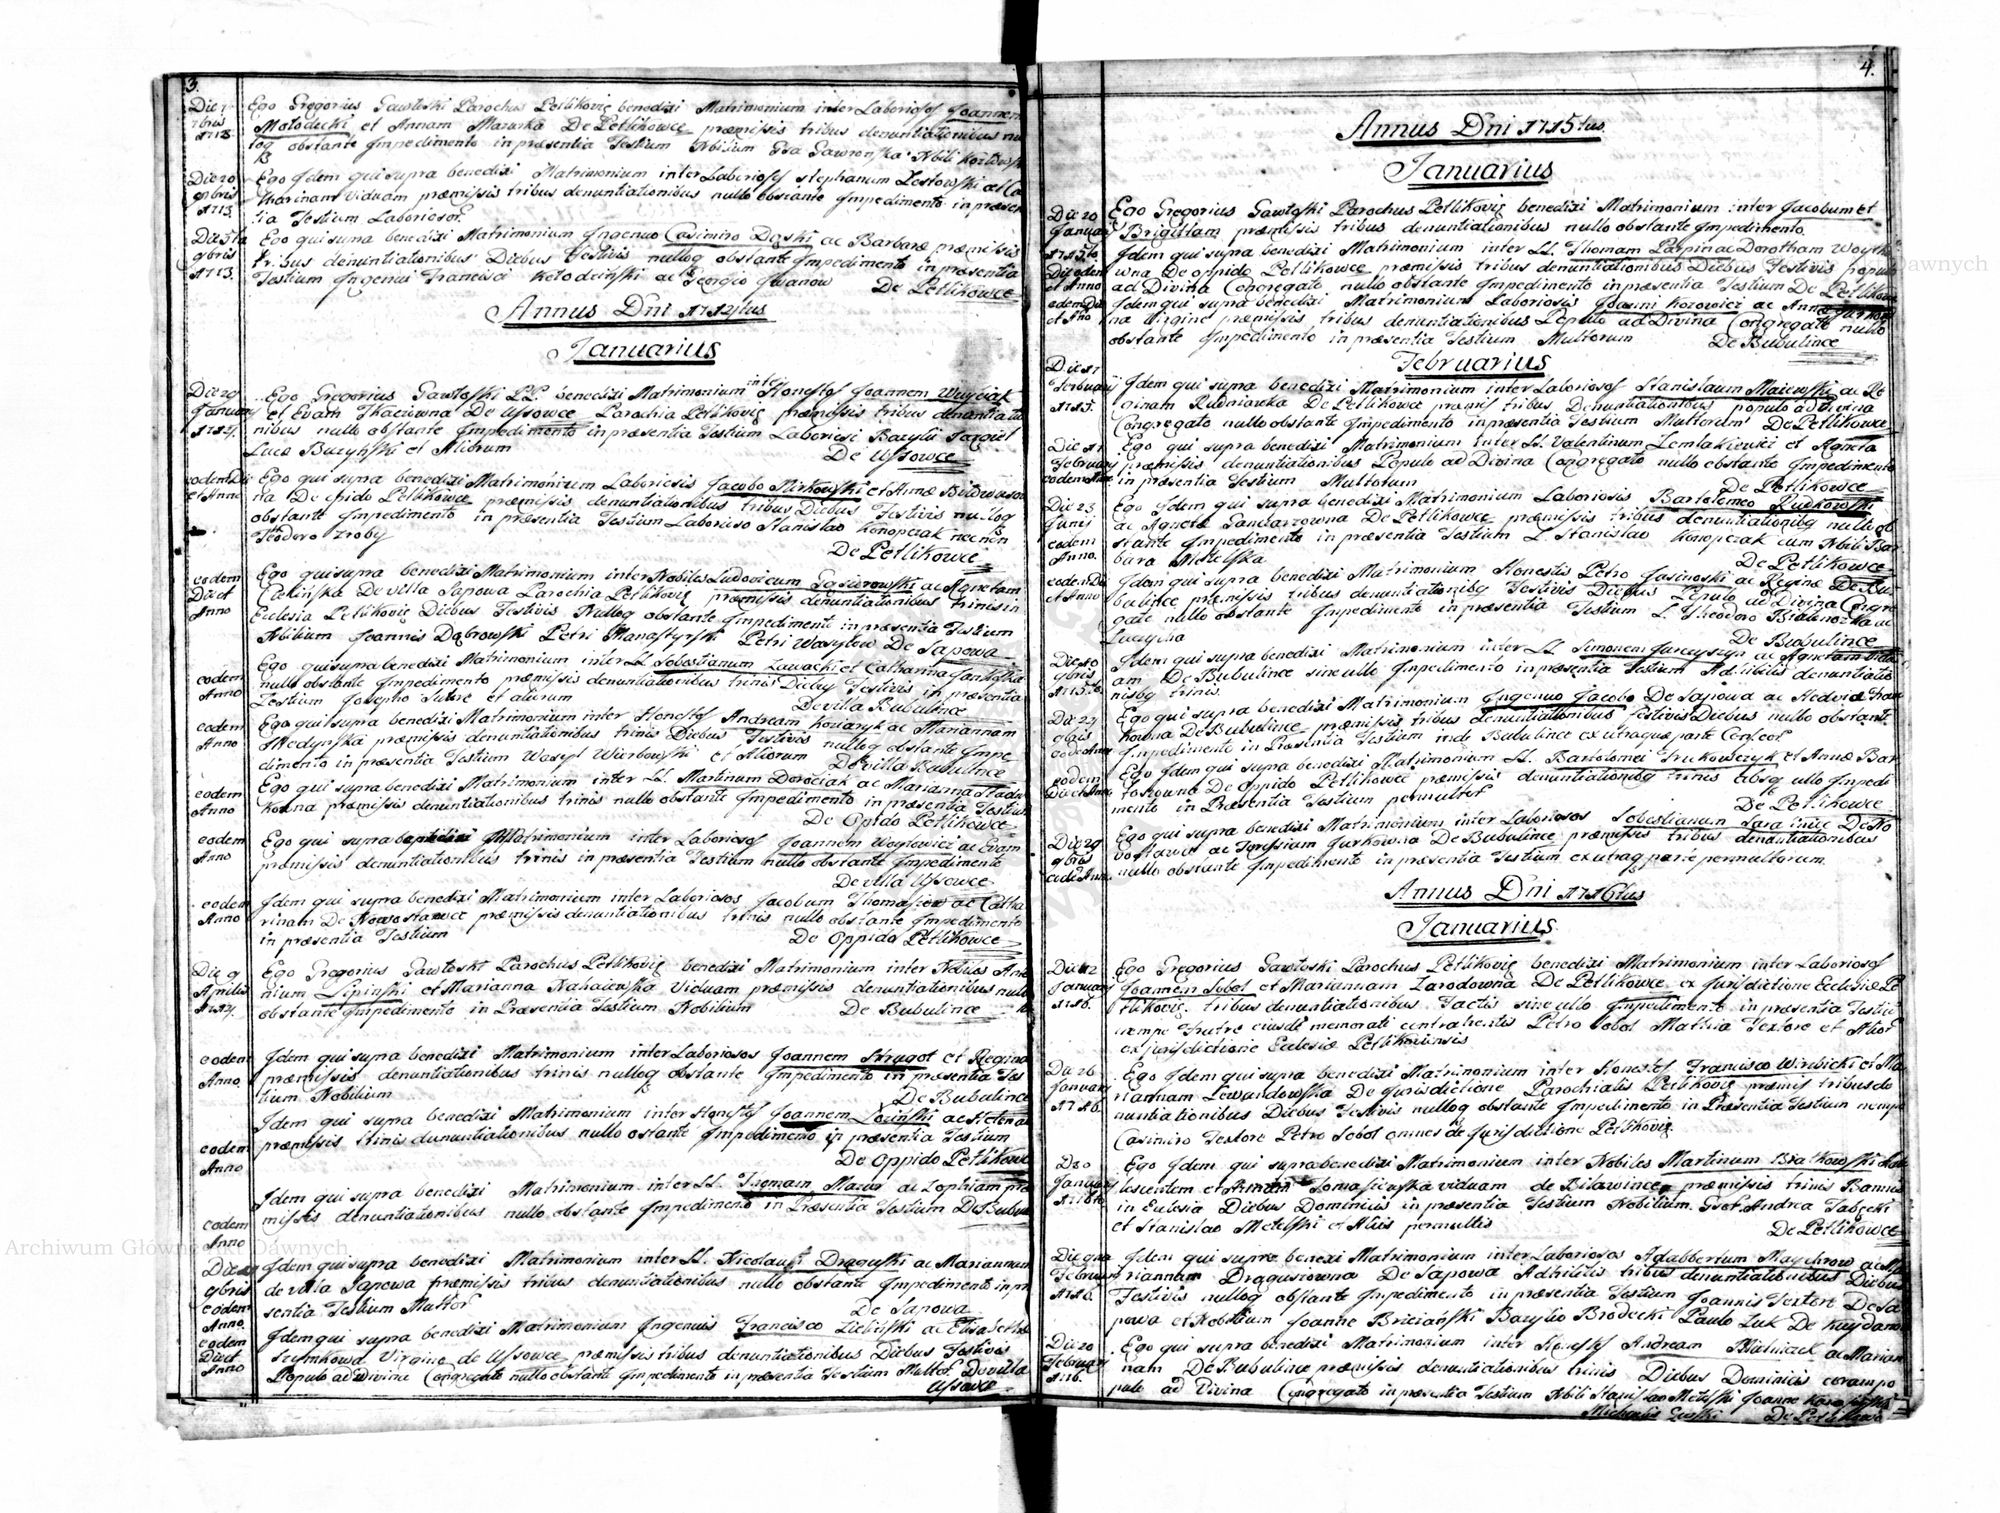 3.
Die 7
9bris
1713.
Ego Gregorius Gawłoski Parochus Petlikovię benedixi Matrimonium inter Laboriosos Joannem
Mołodecki et Annam Mazurka De Petlikowce præmissis tribus denuntiationibus nul
loq obstante Impedimento in præsentia Testium Nbilium
Die 20
9bris
1713.
Ego Idem qui supra benedixi Matrimonium inter Laboriosos Stephanum Lestowski ac Ca
tharinam Viduam præmissis tribus denuntiationibus nullo obstante Impedimento in præsen
tia Testium Laboriosor.
Die 5ta
9bris
1713.
Ego qui supra benedixi Matrimonium Ingenuo Casimiro Dąski ac Barbaræ præmissis
tribus denuntiationibus Diebus Festivis nulloq obstante Impedimento in præsentia
Testium Ingenui Francisci Kołodziński ac Georgio Iwanow De Petlikowce
Annus Dni 1714tus
Januarius
Die 29
January
1714.
Ego Gregorius Gawłoski P.P. benedixi Matrimonium inter Honestos Joannem Wuyciak
et Evam Tkaczowna De Ussowce Parochia Petlikovię præmissis tribus denuntiatio
nibus nullo obstante Impedimento in præsentia Testium Laboriosi Bazylii
Lucæ Buczyński et Aliorum De Ussowce
eodem Die
et Anno
Ego qui supra benedixi Matrimonium Laboriosis Jacobo Mirkowski et Annæ
na De Opido Petlikowce præmissis denuntiationibus tribus Diebus Festivis nulloq
obstante Impedimento in præsentia Testium Laborioso Stanislao Konopczak necnon
Teodoro Zroby
De Petlikowce
eodem
Die et
Anno
Ego qui supra benedixi Matrimonium inter Nobiles Ludovicum Gąsiorowski ac Agnetam
Cieńska De villa Sapowa Parochia Petlikovię præmissis denuntiationibus trinis in
Eclesia Petlikovię Diebus Festivis Nulloq obstante Impedimento in præsentia Testium
Nbilium Joannis Dąbrowski Petri Manastyrski Petri Wasylow De Sapowa
eodem
Anno
Ego qui supra benedixi Matrimonium inter LL. Sebestianum Zawacki et Catharina
nullo obstante Impedimento præmissis denuntiationibus trinis Diebus Festivis in præsentia
Testium Josepho Sutore et aliorum De villa Bubulince
eodem
Anno
Ego qui supra benedixi Matrimonium inter Honestos Andream Koniaryk ac Mariannam
Medynska præmissis denuntiationibus trinis Diebus Festivis nulloq obstante Impe
dimento in præsentia Testium Wasyl Wierbowski et Aliorum De villa Bubulince
eodem
Anno
Ego qui supra benedixi Matrimonium inter LL. Martinum Dorociak ac Marianna
kowna præmissis denuntiationibus trinis nullo obstante Impedimento in præsentia Testium
De Opido Petlikowce
eodem
Anno
Ego qui supra benedixi Matrimonium inter Laboriosos Joannem Woytowicz ac Evam
præmissis denuntiationibus trinis in præsentia Testium nullo obstante Impedimento
De villa Ussowce
eodem
Anno
Idem qui supra benedixi Matrimonium inter Laboriosos Jacobum Thomaszow ac Catha
rinam De Nowostawce præmissis denuntiationibus trinis nullo obstante Impedimento
in præsentia Testium De Oppido Petlikowce
Die 9
Aprilis
1714.
Ego Gregorius Gawłoski Parochus Petlikovię benedixi Matrimonium inter Nobiles Anto
nium Lipinski et Marianna Nahaiewska Viduam præmissis denuntiationibus nullo
obstante Impedimento in Præsentia Testium Nobilium De Bubulince
eodem
Anno
Idem qui supra benedixi Matrimonium inter Laboriosos Joannem Strugot et Regina
præmissis denuntiationibus trinis nulloq obstante Impedimento in præsentia Tes
tium Nobilium De Bubulince
eodem
Anno
Idem qui supra benedixi Matrimonium inter Honestos Joannem Łosinski ac Helena
præmissis trinis denuntiationibus nullo ostante Impedimento in præsentia Testium
De Oppido Petlikowce
eodem
Anno
Idem qui supra benedixi Matrimonium inter LL. Thomam Mazur ac Zophiam præ
missis denuntiationibus nullo obstante Impedimento in Præsentia Testium De Bubul
Die
9bris
eodem
Anno
Idem qui supra benedixi Matrimonium inter LL. Nicolaum Draguski ac Mariannam
de villa Sapowa præmissis tribus denuntiationibus nullo obstante Impedimento in præ
sentia Testium Multor. De Sapowa
eodem
Die et
Anno
Idem qui supra benedixi Matrimonium Ingenuis Francisco Zielinski ac Elisabethæ
Szymkowa Virgine de Ussowce præmissis tribus denuntiationibus Diebus Festivis
Populo ad Divina Congregato nullo obstante Impedimento in præsentia Testium Multor. De villa
Ussowce
4.
Annus Dni 1715tus.
Januarius
Die 20
January
1715to
Ego Gregorius Gawłoski Parochus Petlikovię benedixi Matrimonium inter Jacobum et
Brigittam præmissis tribus denuntiationibus nullo obstante Impedimento.
Die eodem
et Anno
Idem qui supra benedixi Matrimonium inter LL. Thomam Karpin ac Dorotham Woytko
wna De oppido Petlikowce præmissis tribus denuntiationibus Diebus Festivis populo
ad Divina Congregato nullo obstante Impedimento in præsentia Testium De Petlikowce
eodem Die
et Ano
Idem qui supra benedixi Matrimonium Laboriosis Joanni Kozowicz ac Annæ
na Virgine præmissis tribus denuntiationibus Populo ad Divina Congregato nullo
obstante Impedimento in præsentia Testium Multorum De Bubulince
Februarius
Die 17
February
1715.
Idem qui supra benedixi Matrimonium inter Laboriosos Stanislaum Maiewski ac Re
ginam Rudnianka De Petlikowce præmis tribus Denuntiationibus populo ad divina
Congregato nullo obstante Impedimento in præsentia Testium Multorum De Petlikowce
Die 17
February
eodem Anno
Ego qui supra benedixi Matrimonium inter LL. Valentinum Zemlakiewicz et Agneta
præmissis denuntiationibus Populo ad Divina Congregato nullo obstante Impedimento
in præsentia Testium Multorum De Petlikowce
Die 23
Junis
eodem
Anno.
Ego Idem qui supra benedixi Matrimonium Laboriosis Bartolomeo Rudkowski
ac Agneta Gandarzowna De Petlikowce præmissis tribus denuntiationibq nullo ob
stante Impedimento in præsentia Testium L. Stanislao Konopczak cum Nbili Bar
bara Metelska De Petlikowce
eodem Die
et Anno
Idem qui supra benedixi Matrimonium Honestis Petro Jasinoski ac Reginæ De Bu
bulince præmissis tribus denuntiationibq Festivis Diebus Populo ad Divina Congre
gate nullo obstante Impedimento in præsentia Testium L. Theodoro
De Bubulince
Die 10
9bris
1715to.
Idem qui supra benedixi Matrimonium inter LL. Simonem ac Agnetam
am De Bubulince sine ullo Impedimento in præsentia Testium Adhibitis denuntiatio
nisbq trinis.
Die 29
eodem Anno
Ego qui supra benedixi Matrimonium Ingenuo Jacobo De Sapowa ac Hedviæ
kowna De Bubulince præmissis tribus denuntiationibus Festivis Diebus nullo obstante
Impedimento in Præsentia Testium inde Bubulince ex utraque parte
eodem
Die et Anno
Ego Idem qui supra benedixi Matrimonium LL. Bartolomei Trukowczyk et Annæ Bar
toszowna De Oppido Petlikowce præmissis denuntiationibq trinis absq ullo Impedi
mento in Præsentia Testium permultor. De Petlikowce
Die 29
9bris
eode Anno
Ego qui supra benedixi Matrimonium inter Laboriosos Sebestianum De No
vostawce ac Teressiam Jurkowna De Bubulince præmissis tribus denuntiationibus
nullo obstante Impedimento in præsentia Testium ex utraq parte permultorum.
Annus Dni 1716tus
Januarius.
Die 12
January
1716.
Ego Gregorius Gawłoski Parochus Petlikovię benedixi Matrimonium inter Laboriosos
Joannem Sobol et Mariannam Zarodowna De Petlikowce ex Jurisdictione Ecclesiæ Pe
tlikovię. tribus denuntiationibus Factis sine ullo Impedimento in præsentia Testiu
nempe Fratre eiusdē memorati contrahentis Petro Sobol Mathia Textore et Alior
ex jurisdictione Eclesiæ Petlikoviensis
Die 26
January
1716.
Ego Idem qui supra benedixi Matrimonium inter Honestos Francisco Wirbicki et Ma
riannam Lewandowska De Jurisdictione Parochialis Petlikovię præmis tribus de
nuntiationibus Diebus Festivis nulloq obstante Impedimento in Præsentia Testium nempe
Casimiro Textore Petro Sobol omnes de Jurisdictione Petlikovię.
January
Ego Idem qui supra benedixi Matrimonium inter Nobiles Martinum Białkowski Ado
lescentem et Annam Tomaszewska viduam de Bilawince præmissis trinis Bannis
in Eclesia Diebus Dominicis in præsentia Testium Nobilium Gsof. Andrea Tabęcki
et Stanislao Metelski et Aliis permultis De Petlikowce
Die 9na
February
1716.
Idem qui supra benexi Matrimonium inter Laboriosos Adabbertum Maychrow ac Ma
riannam Dragusiowna De Sapowa Adhibitis tribus denuntiationibus Diebus
Festivis nulloq obstante Impedimento in præsentia Testium Joannis Textore De Sa
powa et Nobilium Joanne Briciański Bazylio Brodecki Paulo Luk De Kuydanow
Die 20
February
1716.
Ego qui supra benedixi Matrimonium inter Honestos Andream Bielniack ac Marian
nam De Bubulince præmissis denuntiationibus trinis Diebus Dominicis corampo
pulo ad Divina Congregato in præsentia Testium Nbili Stanislao Metelski Joanne
De Petlikowce
Archiwum Główne Akt Dawnych